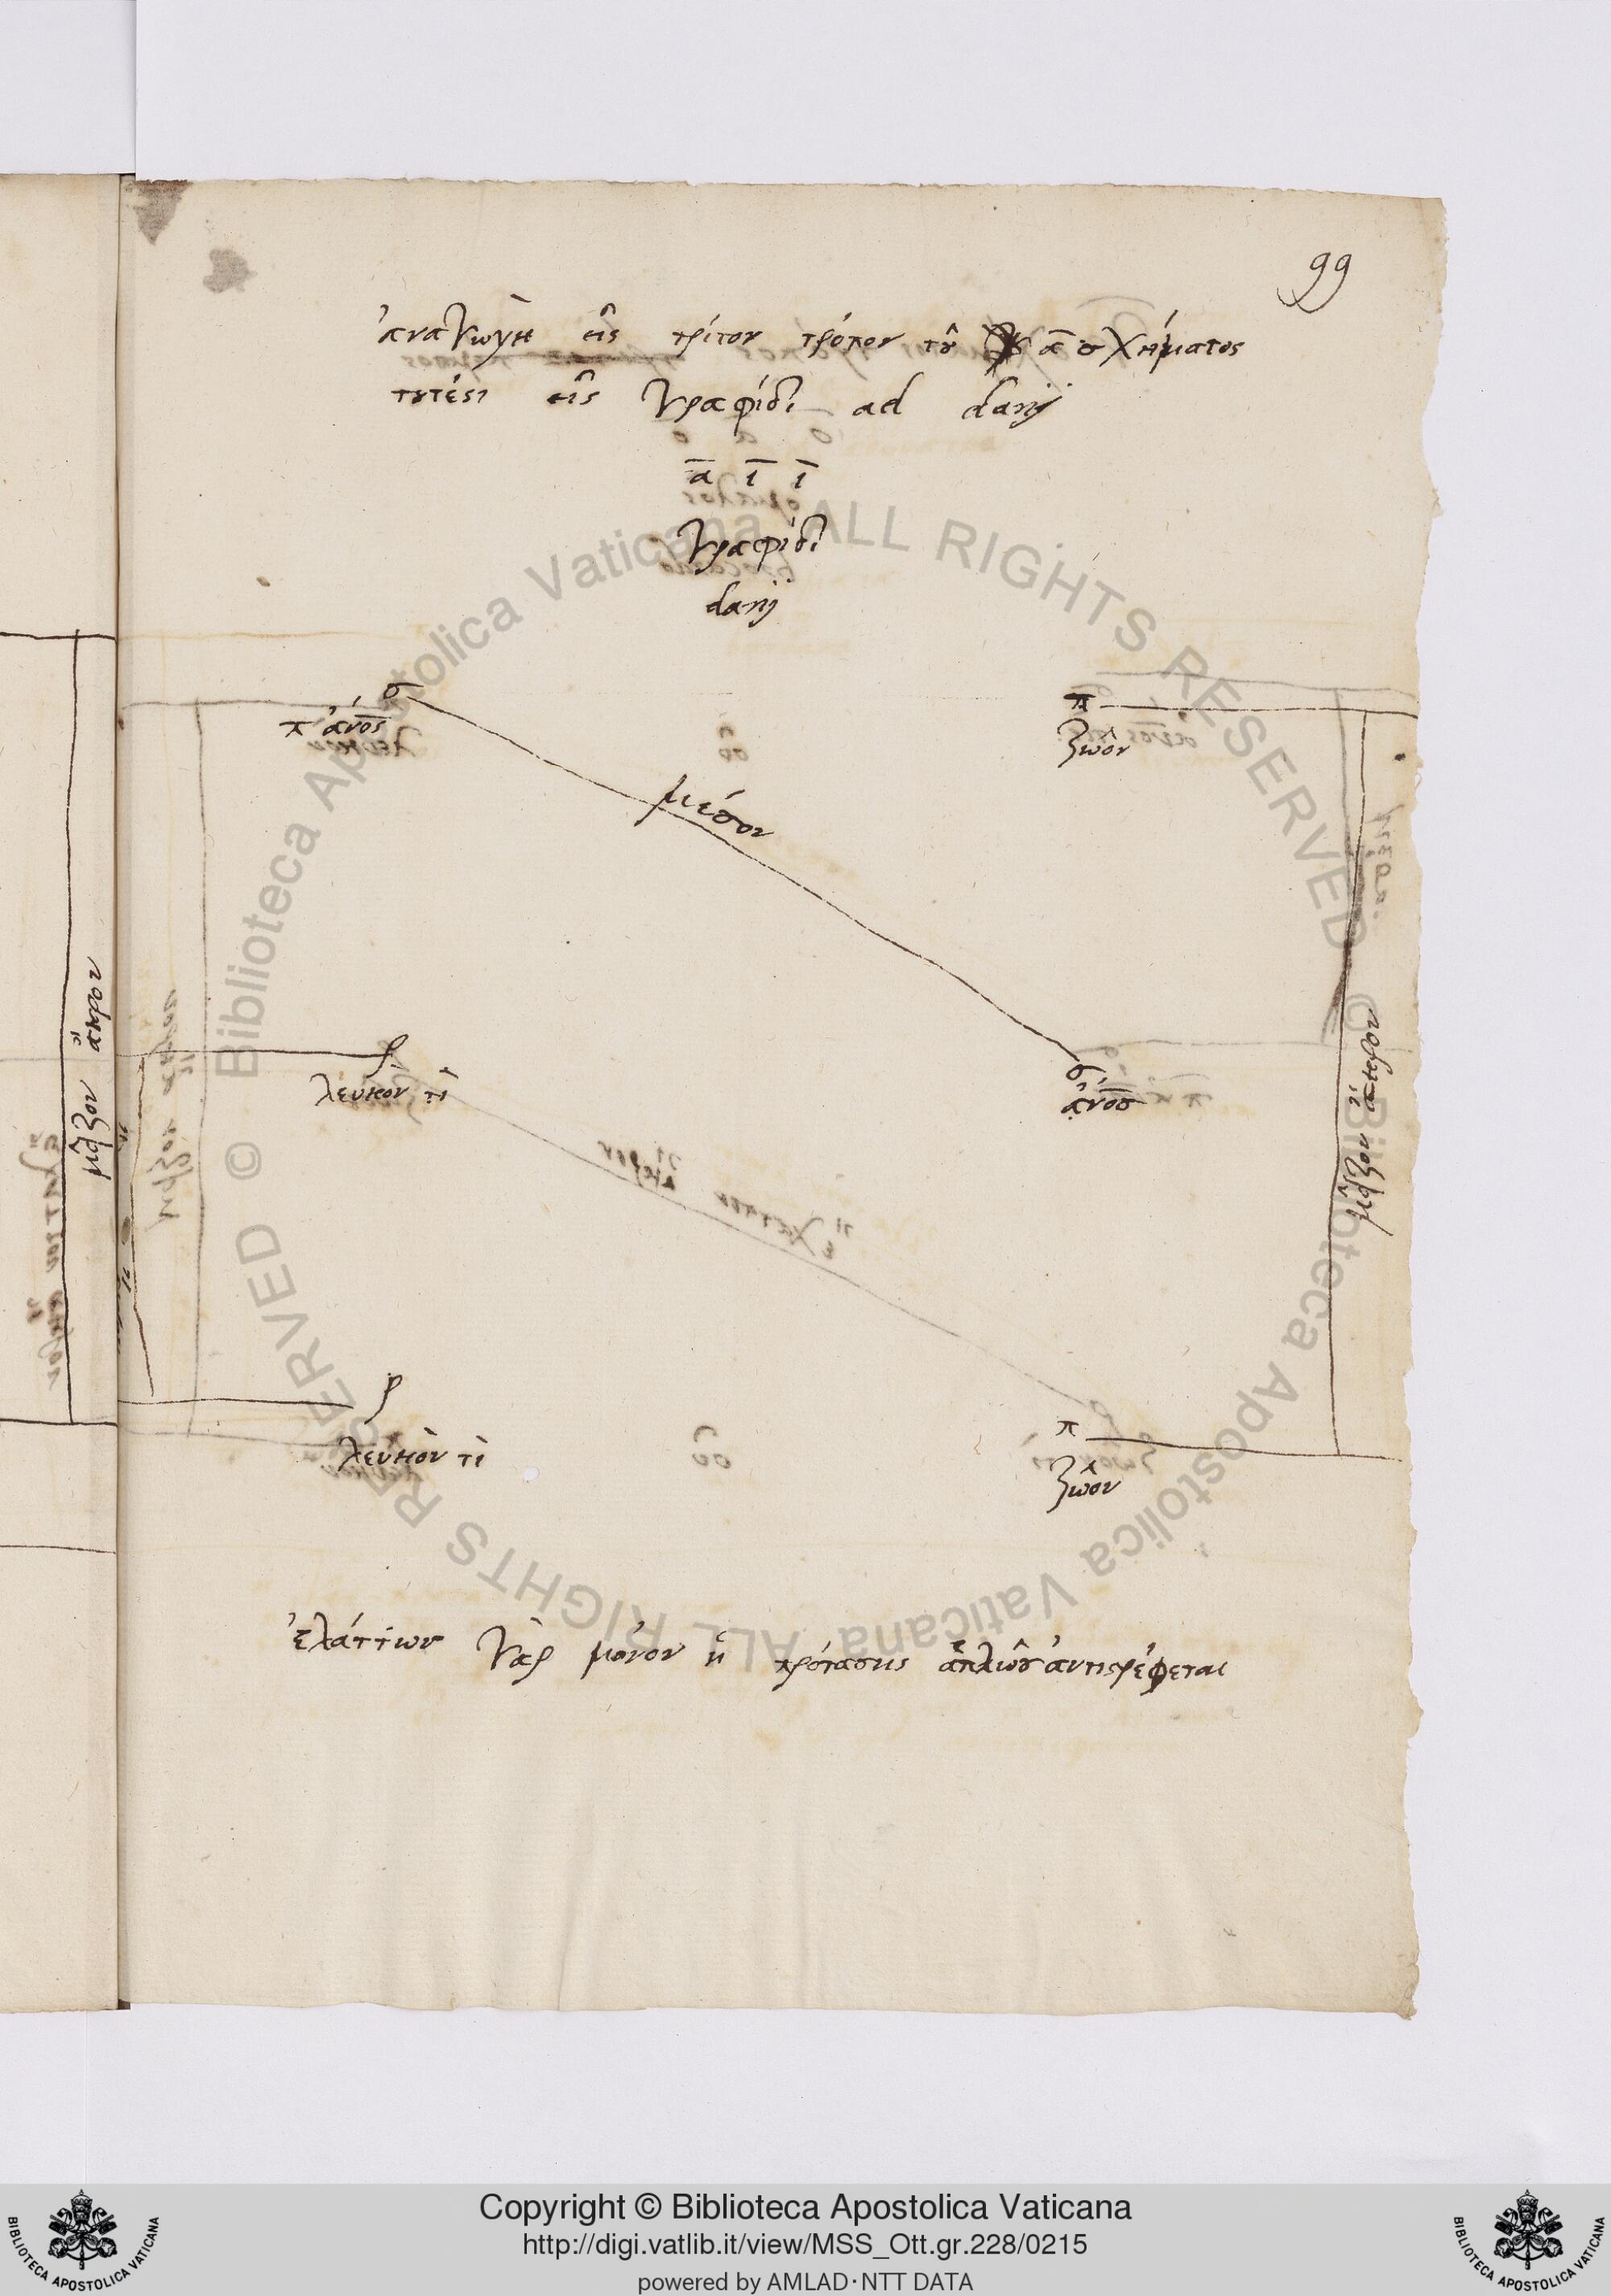 99
ἀναγωγὴ εἰς τρίτον τρόπον τοῦ α̅ σχήματος
τουτέστι εἰς γραφίδι ad darij
α̅ ι̅ ι̅
γραφίδι
darij
σ π
π ἄνο̅ς̅ ζῶον
μέσον
μεῖζον ἄκρον
μεῖζον ἄκρον
ρ σ
λευκόν τι ἄνο̅σ̅
ρ π
λευκόν τι ζῶον
ἐλάττων γὰρ μόνον ἡ πρότασις ἁπλῶς ἀντιστρέφεται
© Biblioteca Apostolica Vaticana ALL RIGHTS RESERVED © Biblioteca Apostolica Vaticana ALL RIGHTS RESERVED
Copyright © Biblioteca Apostolica Vaticana
http://digi.vatlib.it/view/MSS_Ott.gr.228/0215
powered by AMLAD·NTT DATA
BIBLIOTECA APOSTOLICA VATICANA
BIBLIOTECA APOSTOLICA VATICANA